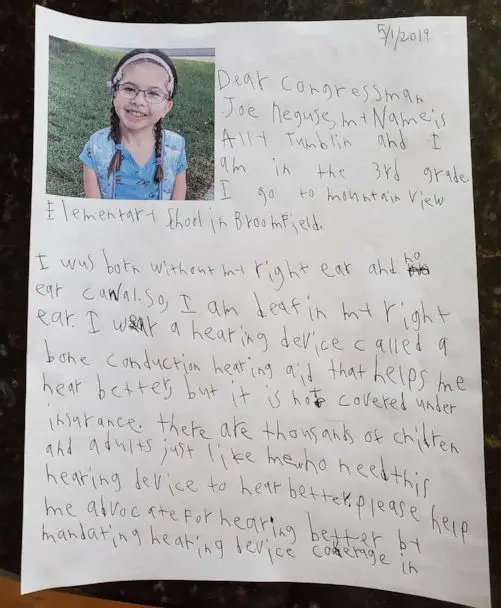 5/1/2019
Dear Congressman
Joe Neguse, my Name is
Ally Tumblin and I
am in the 3rd grade.
I go to mountain view
Elementary School in Broomfield.
I was born without my right ear and no
ear canal. So, I am deaf in my right
ear. I wear a hearing device called a
bone conduction hearing aid that helps me
hear better, but it is not covered under
insurance. there are thousands of children
and adults just like me who need this
hearing device to hear better. please help
me advocate for hearing better by
mandating hearing device coverage in